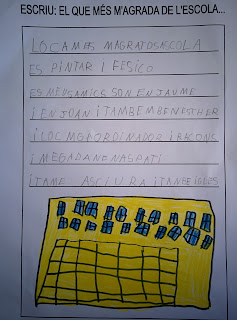 ESCRIU: EL QUE MÉS M'AGRADA DE L'ESCOLA...
LOCAMES MAGRATDSASCOLA
ES PINTAR I FESICO
ES MEUSAMICS SON ENJAUME
IENJOAN ITAMBEMBENESTHER
ILOC MGIORDINADOR IRACONS
IMEGADANENASPATI
ITAME ASCIURA ITANBEIGLES